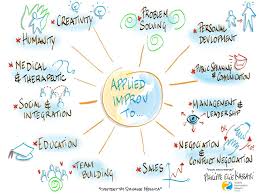 CREATIVITY
PROBLEM
SOLVING
HUMANITY
PERSONAL
DEVLOPMENT
MEDICAL
& THERAPEUTIC
PUBLIC SPEAKING
& COMMUNICATION
APPLIED
IMPROV
TO...
SOCIAL &
INTEGRATION
MANAGEMENT
& LEADERSHIP
EDUCATION
NEGOCIATION &
CONFLICT NEGOTIATION
TEAM
BUILDING
SALES